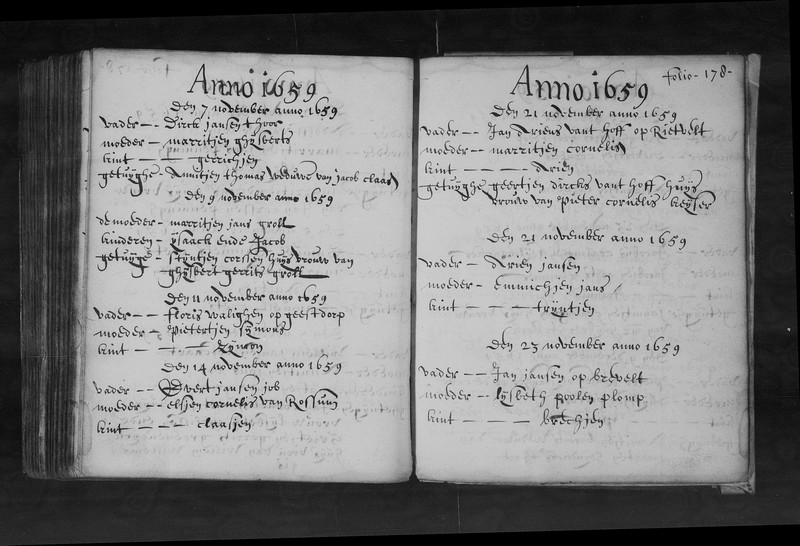 Anno 1659
Den 7 november anno 1659
vader — Dirck jansen thoor
moeder — marritjen ghijsberts
kint — gerrichjen
getuijghe Annitjen thomas weduwe van jacob claasz
Den 9 november anno 1659
de moeder — marritjen jans groll
kinderen — ijsaack ende Jacob
getuijge — stijntjen corssen huijs vrouw van
ghijsbert gerrits groll
Den 11 november anno 1659
vader — floris walighen op geestdorp
moeder — pietertjen sijmons
kint — sijmon
Den 14 november anno 1659
vader — Evert jansen job
moeder — elsjen cornelis van Rossum
kint — claasjen
Anno 1659
folio - 178 -
Den 21 november anno 1659
vader — Jan Driens vant hoff op Rietvelt
moeder — marritjen cornelis
kint — Drien
getuijghe geertjen dircks vant hoff huijs
vrouw van pieter cornelis keijser
Den 21 november anno 1659
vader — Drien jansen
moeder — emmichjen jans
kint — trijntjen
Den 23 november anno 1659
vader — Jan jansen op brevelt
moeder — lijsbeth poolen plomp
kint — brechjen